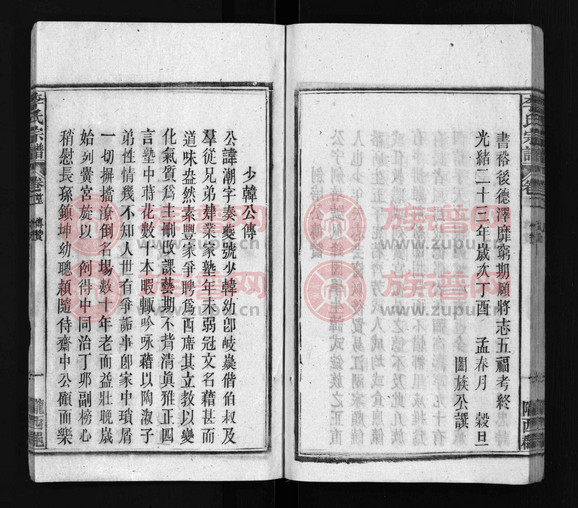 書裕後德澤靡窮期願將志五福考終
光緒二十三年歲次丁酉 孟春月 穀旦
闔族公譔
少韓公傳
公諱潮字奏夔號少韓幼卽岐嶷偕伯叔及
羣從兄弟肄業家塾年未弱冠文名藉甚而
道味盎然素豐家爭聘爲西席其立教以變
化氣質爲主刪收課藝期不背清真雅正四
言塾中蒔花數十本暇輒吟咏藉以陶淑子
弟性情幾不知人世有爭詬事卽家中瑣屑
一切摒擋潦倒名場數十年老而益壯晩歲
始到黌宮旋以一衿得中同治丁卯副榜心
稍慰長孫鎮坤幼聰穎隨侍齋中公顧而樂
李氏宗譜
傳贊
隴西郡
李氏宗譜
隴西郡
族谱网
www.zupu.cn